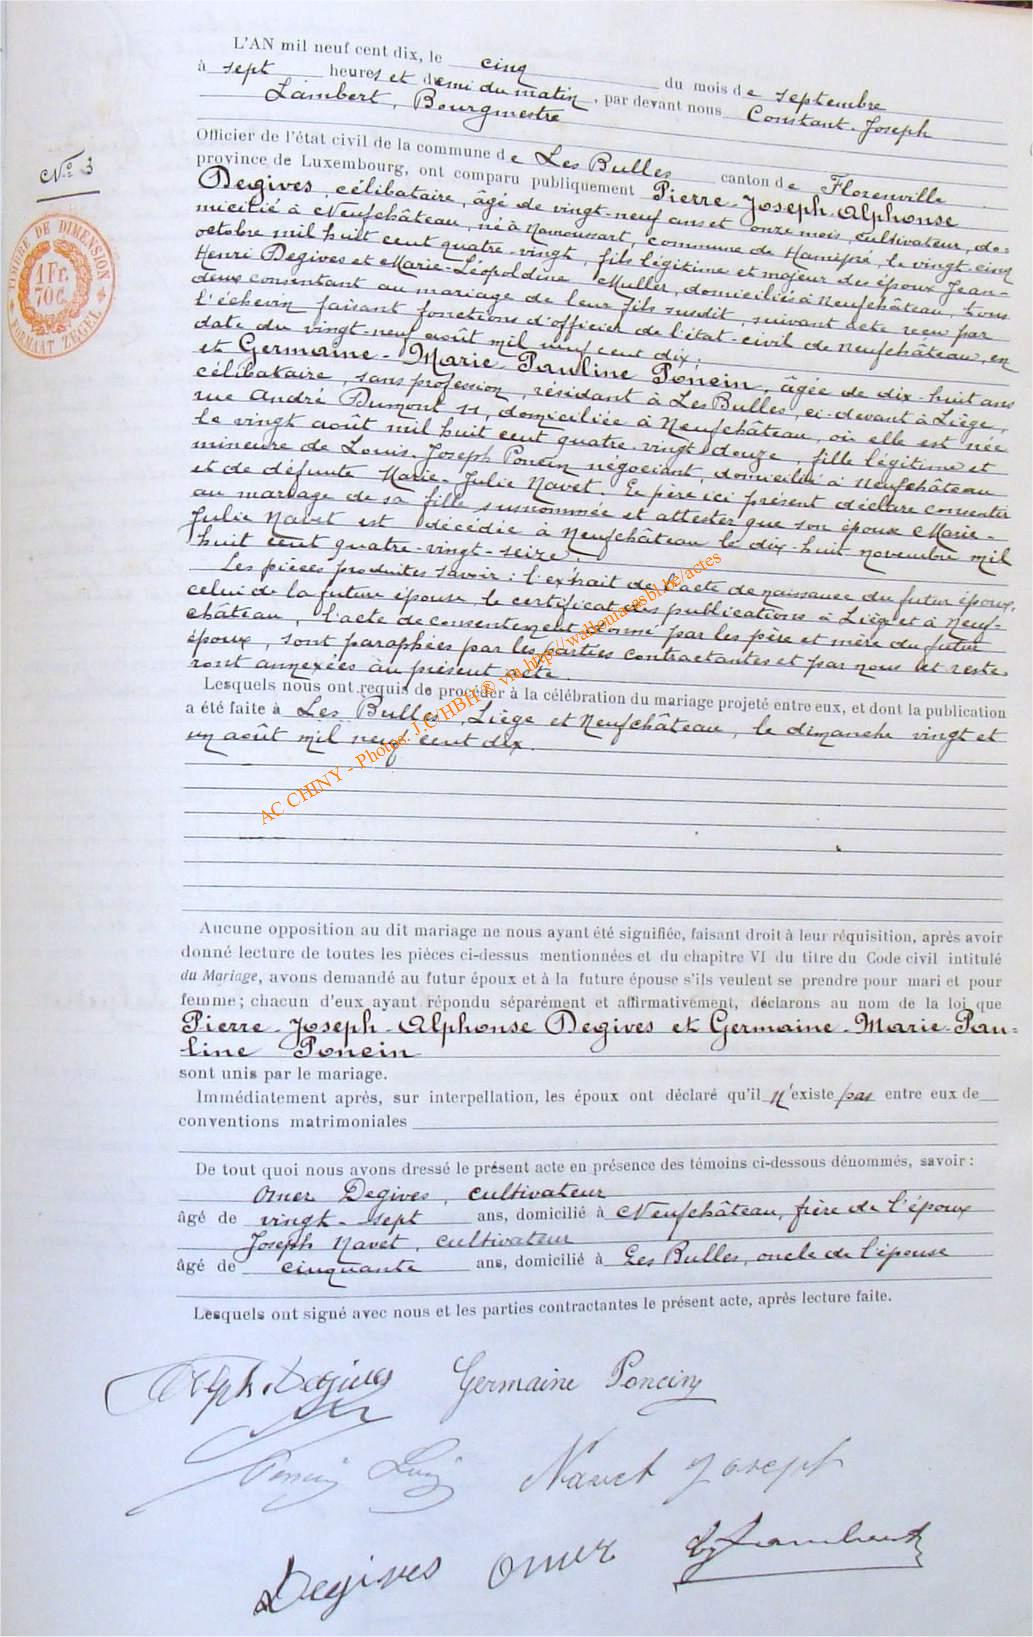 L'AN mil neuf cent dix, le cinq du mois de septembre
à sept heures et demi du matin, par devant nous Constant-Joseph
Lambert, Bourgmestre
Officier de l'état civil de la commune de Les Bulles canton de Florenville
province de Luxembourg, ont comparu publiquement Pierre-Joseph-Alphonse
N° 3
Degives, célibataire, âgé de vingt-neuf ans et onze mois, cultivateur, do-
micilié à Neufchâteau, né à Namoussart, commune de Hamipré, le vingt-cinq
octobre mil huit cent quatre-vingt, fils légitime et majeur des époux Jean-
Henri Degives et Marie-Léopoldine Muller, domiciliés à Neufchâteau, tous
deux consentant au mariage de leur fils susdit, suivant acte reçu par
l'échevin faisant fonctions d'officier de l'état-civil de Neufchâteau, en
date du vingt-neuf août mil neuf cent dix,
TIMBRE DE DIMENSION
1 Fr.
70 c.
FORMAAT ZEGEL
et Germaine-Marie-Pauline Poncin, âgée de dix-huit ans
célibataire, sans profession, résidant à Les Bulles, ci-devant à Liège,
rue André Dumont 11, domiciliée à Neufchâteau, où elle est née
le vingt août mil huit cent quatre-vingt douze, fille légitime et
mineure de Louis-Joseph Poncin négociant, domicilié à Neufchâteau
et de défunte Marie-Julie Navet. Le père ici présent déclare consentir
au mariage de sa fille susnommée et attester que son époux Marie-
Julie Navet est décédée à Neufchâteau le dix-huit novembre mil
huit cent quatre-vingt-seize.
Les pièces produites savoir: l'extrait de l'acte de naissance du futur époux,
celui de la future épouse, le certificat des publications à Liège et à Neuf-
château, l'acte de consentement donné par les père et mère du futur
époux, sont paraphées par les parties contractantes et par nous et reste
ront annexées au présent acte.
Lesquels nous ont requis de procéder à la célébration du mariage projeté entre eux, et dont la publication
a été faite à Les Bulles, Liège et Neufchâteau, le dimanche vingt et
un août mil neuf cent dix.
AC CHINY - Photos: J.C HBH ® via http://walloniaasbl.be/actes
Aucune opposition au dit mariage ne nous ayant été signifiée, faisant droit à leur réquisition, après avoir
donné lecture de toutes les pièces ci-dessus mentionnées et du chapitre VI du titre du Code civil intitulé
du Mariage, avons demandé au futur époux et à la future épouse s'ils veulent se prendre pour mari et pour
femme; chacun d'eux ayant répondu séparément et affirmativement, déclarons au nom de la loi que
Pierre-Joseph-Alphonse Degives et Germaine-Marie-Pau=
line Poncin
sont unis par le mariage.
Immédiatement après, sur interpellation, les époux ont déclaré qu'il n'existe pas entre eux de
conventions matrimoniales
De tout quoi nous avons dressé le présent acte en présence des témoins ci-dessous dénommés, savoir :
Omer Degives, cultivateur
âgé de vingt-sept ans, domicilié à Neufchâteau, frère de l'époux
Joseph Navet, cultivateur
âgé de cinquante ans, domicilié à Les Bulles, oncle de l'épouse
Lesquels ont signé avec nous et les parties contractantes le présent acte, après lecture faite.
Joseph Degives Germaine Poncin
Poncin Louis Navet Joseph
Degives Omer CJLambert